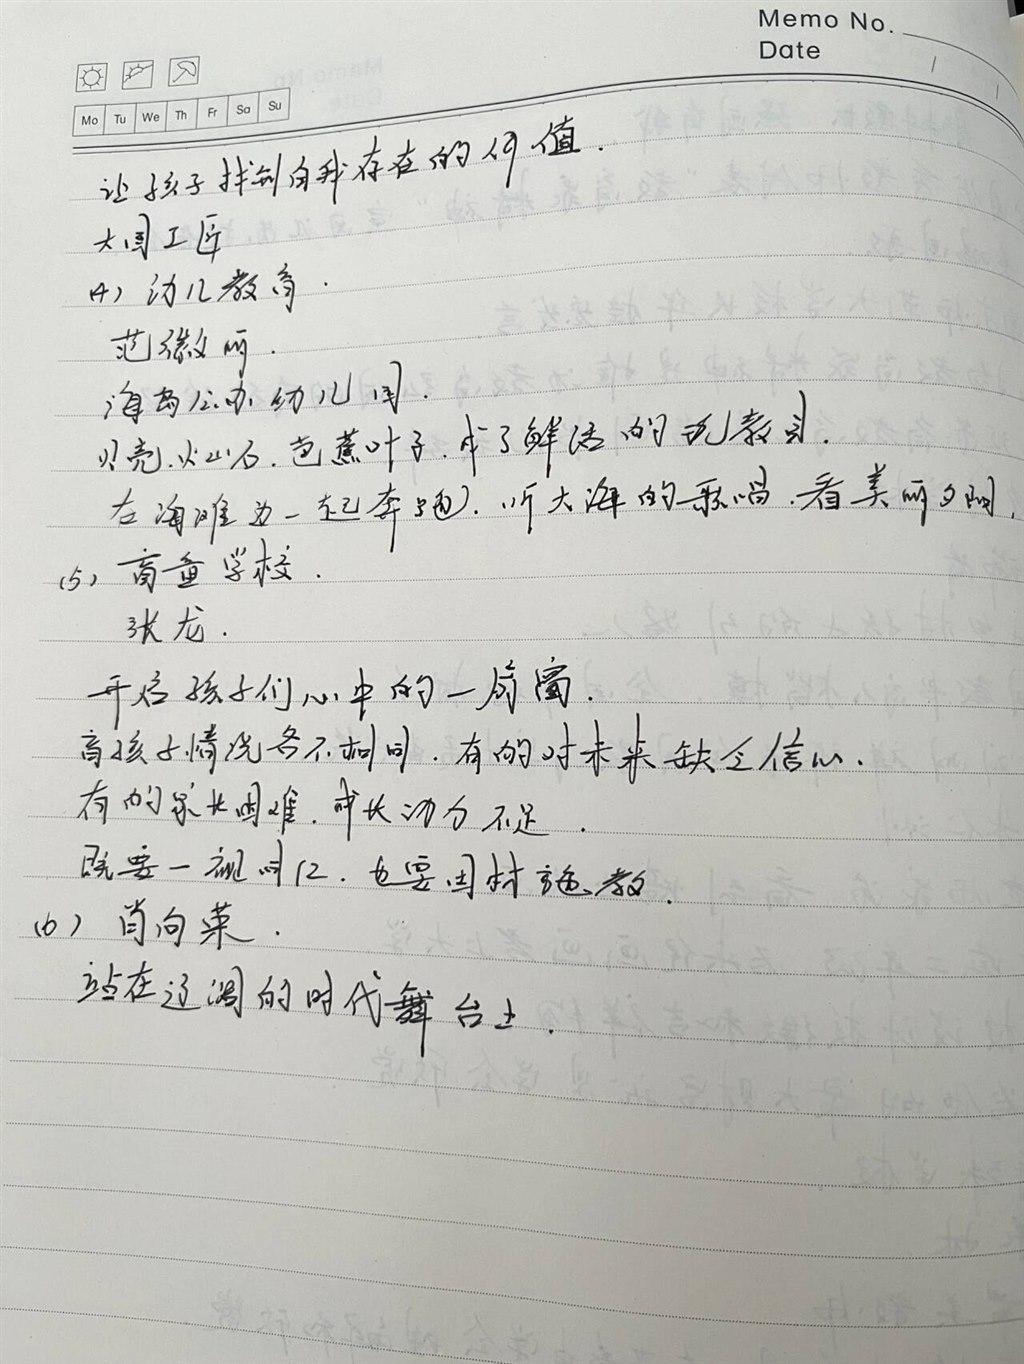 Memo No.
Date
Mo Tu We Th Fr Sa Su
让孩子找到自我存在的价值.
大国工匠
(4) 幼儿教育.
范徽丽.
海岛公办幼儿园.
贝壳.火山石.芭蕉叶子.成了鲜活的玩教具.
在海滩边一起奔跑.听大海的歌唱.看美丽夕阳.
(5) 育童学校.
张龙.
开启孩子们心中的一扇窗.
盲孩子情况各不相同.有的对未来缺乏信心.
有的家长困难.成长动力不足.
既要一视同仁.也要因材施教.
(6) 肖向荣.
站在辽阔的时代舞台上.